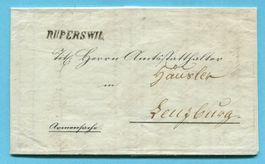 RUPERSWIL
Tit. Herrn Amtsstatthalter
Häusler
in
Lenzburg
Armensache